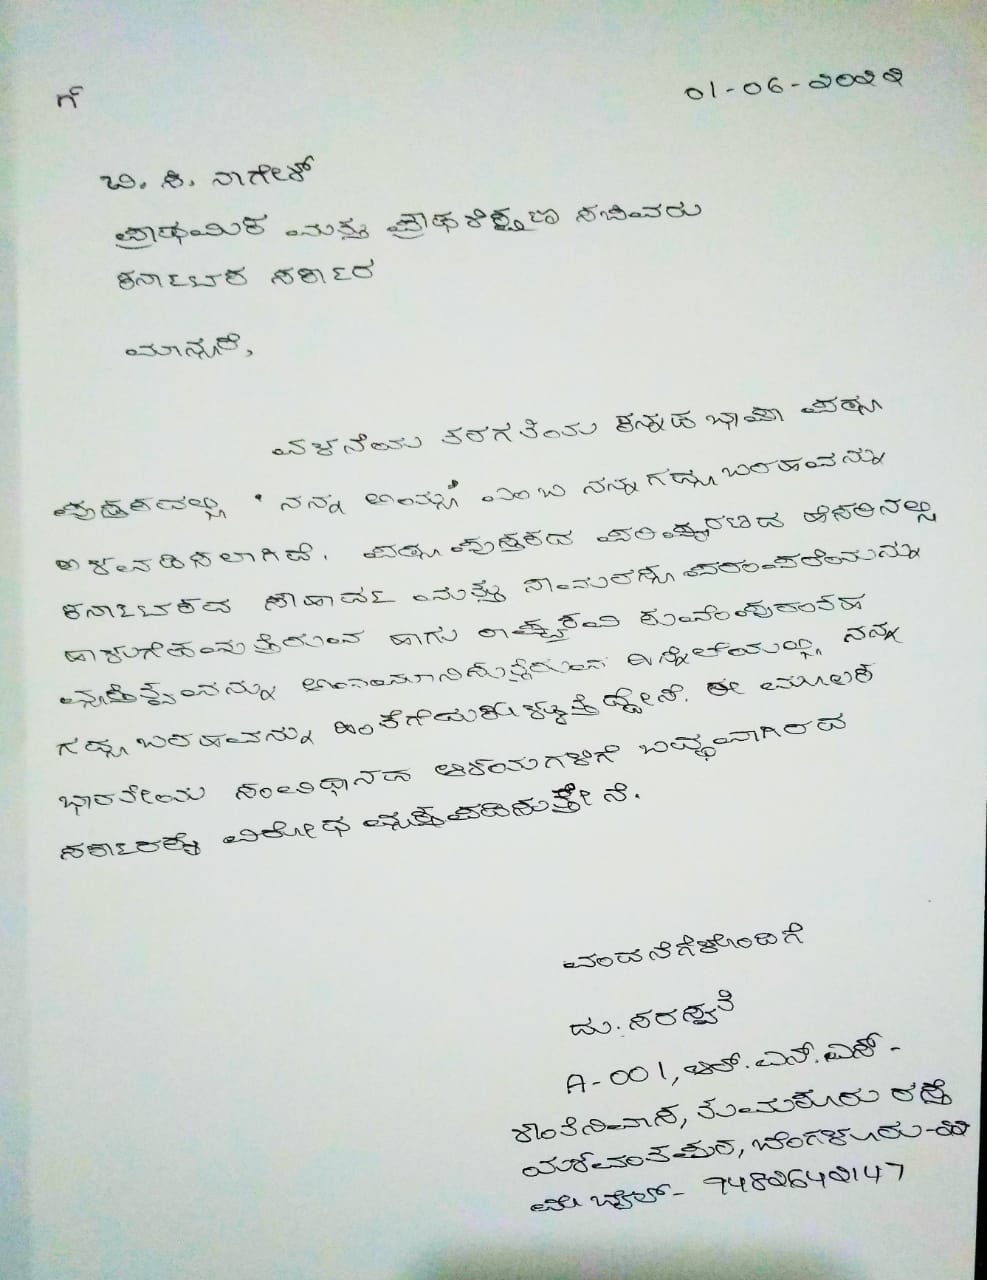 ಗೆ
01-06-೨೦೨೨
ಬಿ. ಸಿ. ನಾಗೇಶ್
ಪ್ರಾಥಮಿಕ ಮತ್ತು ಪ್ರೌಢಶಿಕ್ಷಣ ಸಚಿವರು
ಕರ್ನಾಟಕ ಸರ್ಕಾರ
ಮಾನ್ಯರೆ,
ತರಗತಿಯ ಕನ್ನಡ ಭಾಷಾ ಪಠ್ಯ
ಪುಸ್ತಕದಲ್ಲಿ ' ನನ್ನ ಎಂಬ ನನ್ನ ಗದ್ಯ ಬರಹವನ್ನು
ಅಳವಡಿಸಲಾಗಿದೆ. ಪಠ್ಯಪುಸ್ತಕದ ಪರಿಷ್ಕರಣದ ಹೆಸರಿನಲ್ಲಿ
ಕರ್ನಾಟಕದ ಸೌಹಾರ್ದ ಮತ್ತು ಸಾಮರಸ್ಯ ಪರಂಪರೆಯನ್ನು
ಹಾಳುಗೆಡಹುತ್ತಿರುವ ಹಾಗು ರಾಷ್ಟ್ರಕವಿ ಕುವೆಂಪುರಂತಹ
ವ್ಯಕ್ತಿತ್ವವನ್ನು ಅವಮಾನಿಸುತ್ತಿರುವ ಹಿನ್ನೆಲೆಯಲ್ಲಿ ನನ್ನ
ಗದ್ಯ ಬರಹವನ್ನು ಹಿಂತೆಗೆದುಕೊಳ್ಳುತ್ತಿದ್ದೇನೆ. ಈ ಮೂಲಕ
ಭಾರತೀಯ ಸಂವಿಧಾನದ ಆಶಯಗಳಿಗೆ ಬದ್ಧವಾಗಿರದ
ಸರ್ಕಾರಕ್ಕೆ ವಿರೋಧ ವ್ಯಕ್ತಪಡಿಸುತ್ತೇನೆ.
ವಂದನೆಗಳೊಂದಿಗೆ
ದು. ಸರಸ್ವತಿ
A-001, ಆರ್. ಎನ್. ಎಸ್-
ಶಾಂತಿನಿವಾಸ, ತುಮಕೂರು ರಸ್ತೆ
ಯಶವಂತಪುರ, ಬೆಂಗಳೂರು-೨೨
ಮೊಬೈಲ್- 9482642147